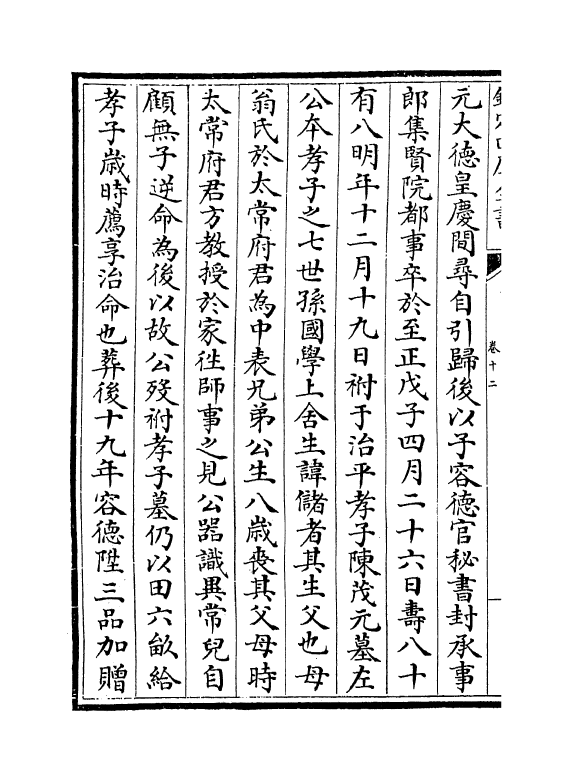 欽定四庫全書
卷十二
元大德皇慶間尋自引歸後以子容德官秘書封承事
郎集賢院都事卒於至正戊子四月二十六日壽八十
有八明年十二月十九日祔于治平孝子陳茂元墓左
公本孝子之七世孫國學上舍生諱儲者其生父也母
翁氏於太常府君為中表兄弟公生八歲喪其父母時
太常府君方教授於家徃師事之見公器識異常兒自
顧無子逆命為後以故公歿祔孝子墓仍以田六畝給
孝子歲時薦享治命也葬後十九年容德陞三品加贈